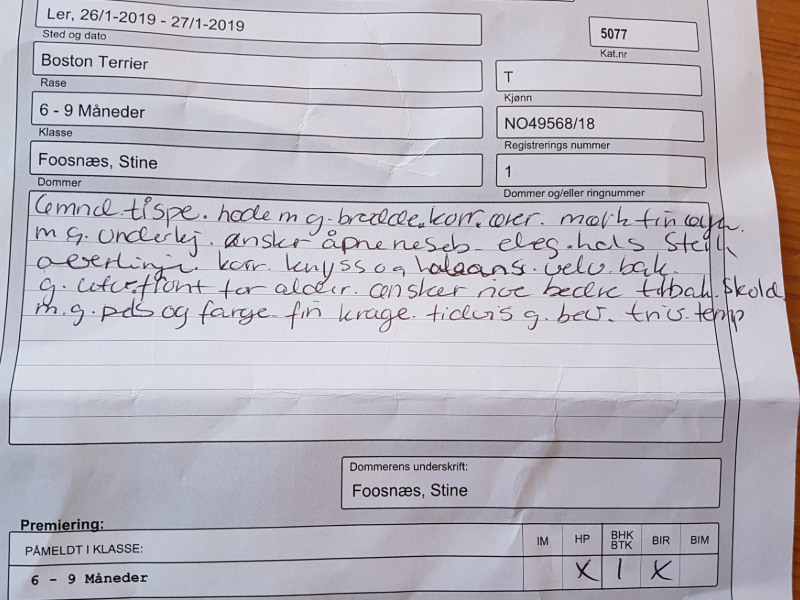 Ler, 26/1-2019 - 27/1-2019
Sted og dato
5077
Kat.nr
Boston Terrier
Rase
T
Kjønn
6 - 9 Måneder
Klasse
NO49568/18
Registrerings nummer
Foosnæs, Stine
Dommer
1
Dommer og/eller ringnummer
6mnd. tispe. hode m g. bredde. korr. ører. mørk fin øyn.
m g. underkj. ønsker åpne neseb. eleg. hals sterk
overlinje. korr. kryss og haleans. velv. bak.
g. utv. front for alder. ønsker noe bedre tilbak. skold.
m. g. pels og farge fin krage. tidvis g. bev. triv. temp
Dommerens underskrift:
Foosnæs, Stine
Premiering:
PÅMELDT I KLASSE:
IM HP BHK BTK BIR BIM
6 - 9 Måneder X 1 X